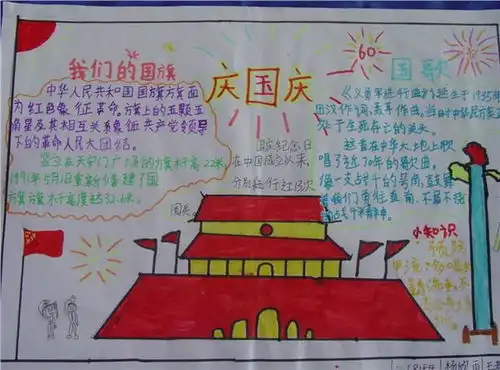 我们的国旗
中华人民共和国国旗旗面
为红色象征革命。旗上的五颗五
角星及其相互关系象征共产党领导
下的革命人民大团结。
竖立在天安门广场的旗杆高22米
1991年5月1日重新修建了国
旗旗杆高度达32.6米。
庆国庆
国庆纪念日
在中国成立以来,
分别进行过13次
阅兵。
60
国歌
《义勇军进行曲》诞生于1935年
田汉作词,聂耳作曲。当时中华民族正
处于生死存亡的关头。
这首在中华大地上歌
唱了近70年的歌曲。
像一支战斗的号角,鼓舞
着我们勇往直前,不屈不挠
小知识
预防
甲流